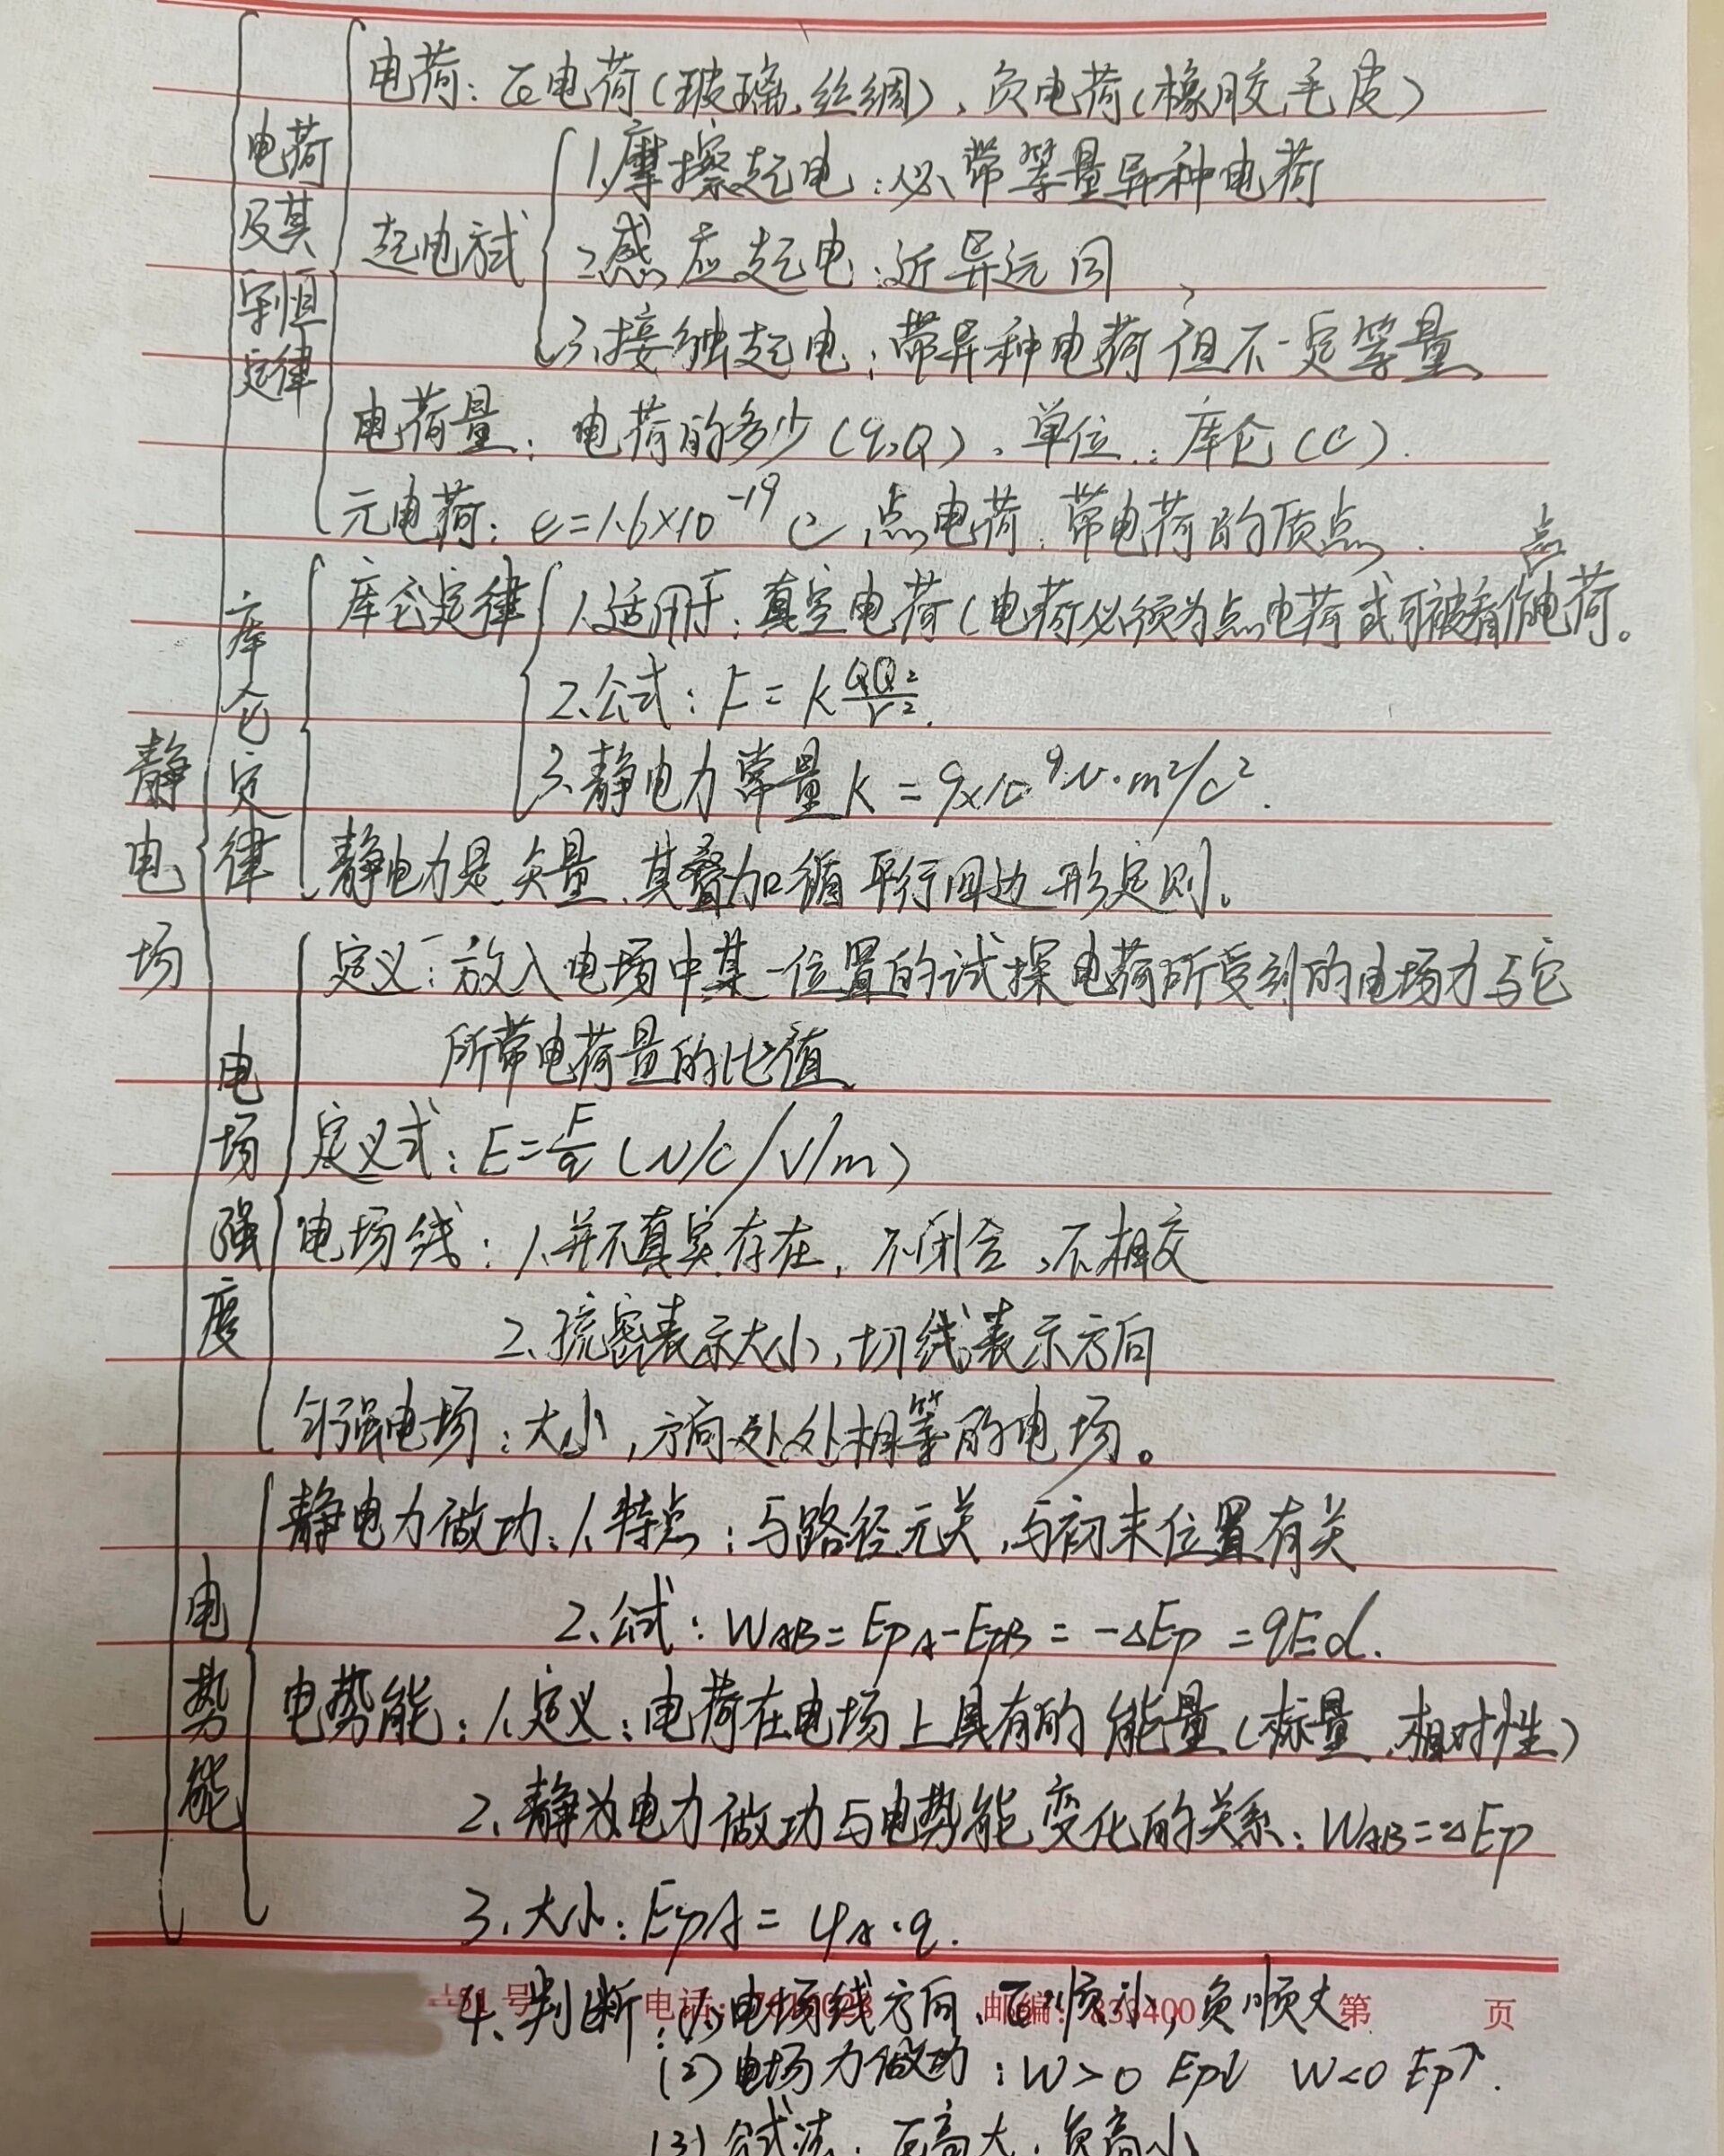 静电场
电荷及其守恒定律
电荷：正电荷（玻璃、丝绸）、负电荷（橡胶、毛皮）
起电方式
1、摩擦起电：必带等量异种电荷
2、感应起电：近异远同
3、接触起电：带异种电荷但不一定等量
电荷量：电荷的多少（q,Q）、单位：库仑（C）.
元电荷：e=1.6×10⁻¹⁹C、点电荷：带电荷的质点.
库仑定律
库仑定律
1、适用于：真空电荷（电荷必须为点电荷或可被看作点电荷。
2、公式：F = k QQ²/r².
3、静电力常量 k = 9×10⁹N·m²/C².
静电力是矢量、其叠加循平行四边形定则。
电场强度
定义：放入电场中某一位置的试探电荷所受到的电场力与它
所带电荷量的比值、
定义式：E=F/q（N/C/V/m）
电场线：1、并不真实存在，不闭合、不相交
2、疏密表示大小，切线表示方向
匀强电场：大小，方向处处相等的电场。
电势能
静电力做功：1、特点：与路径无关，与初末位置有关
2、公式：WAB=EpA-EpB=-△Ep=qEd.
电势能：1、定义：电荷在电场上具有的能量（标量、相对性）
2、静电力做功与电势能变化的关系：WAB=-△Ep
3、大小：EpA=φA·q.
4、判断：(1)电场线方向、正顺小，负顺大
号 电话： 邮编： 833400 第 页
(2)电场力做功：W>0 Ep↓ W<0 Ep↑.
(3)公式法：正高大；负高小